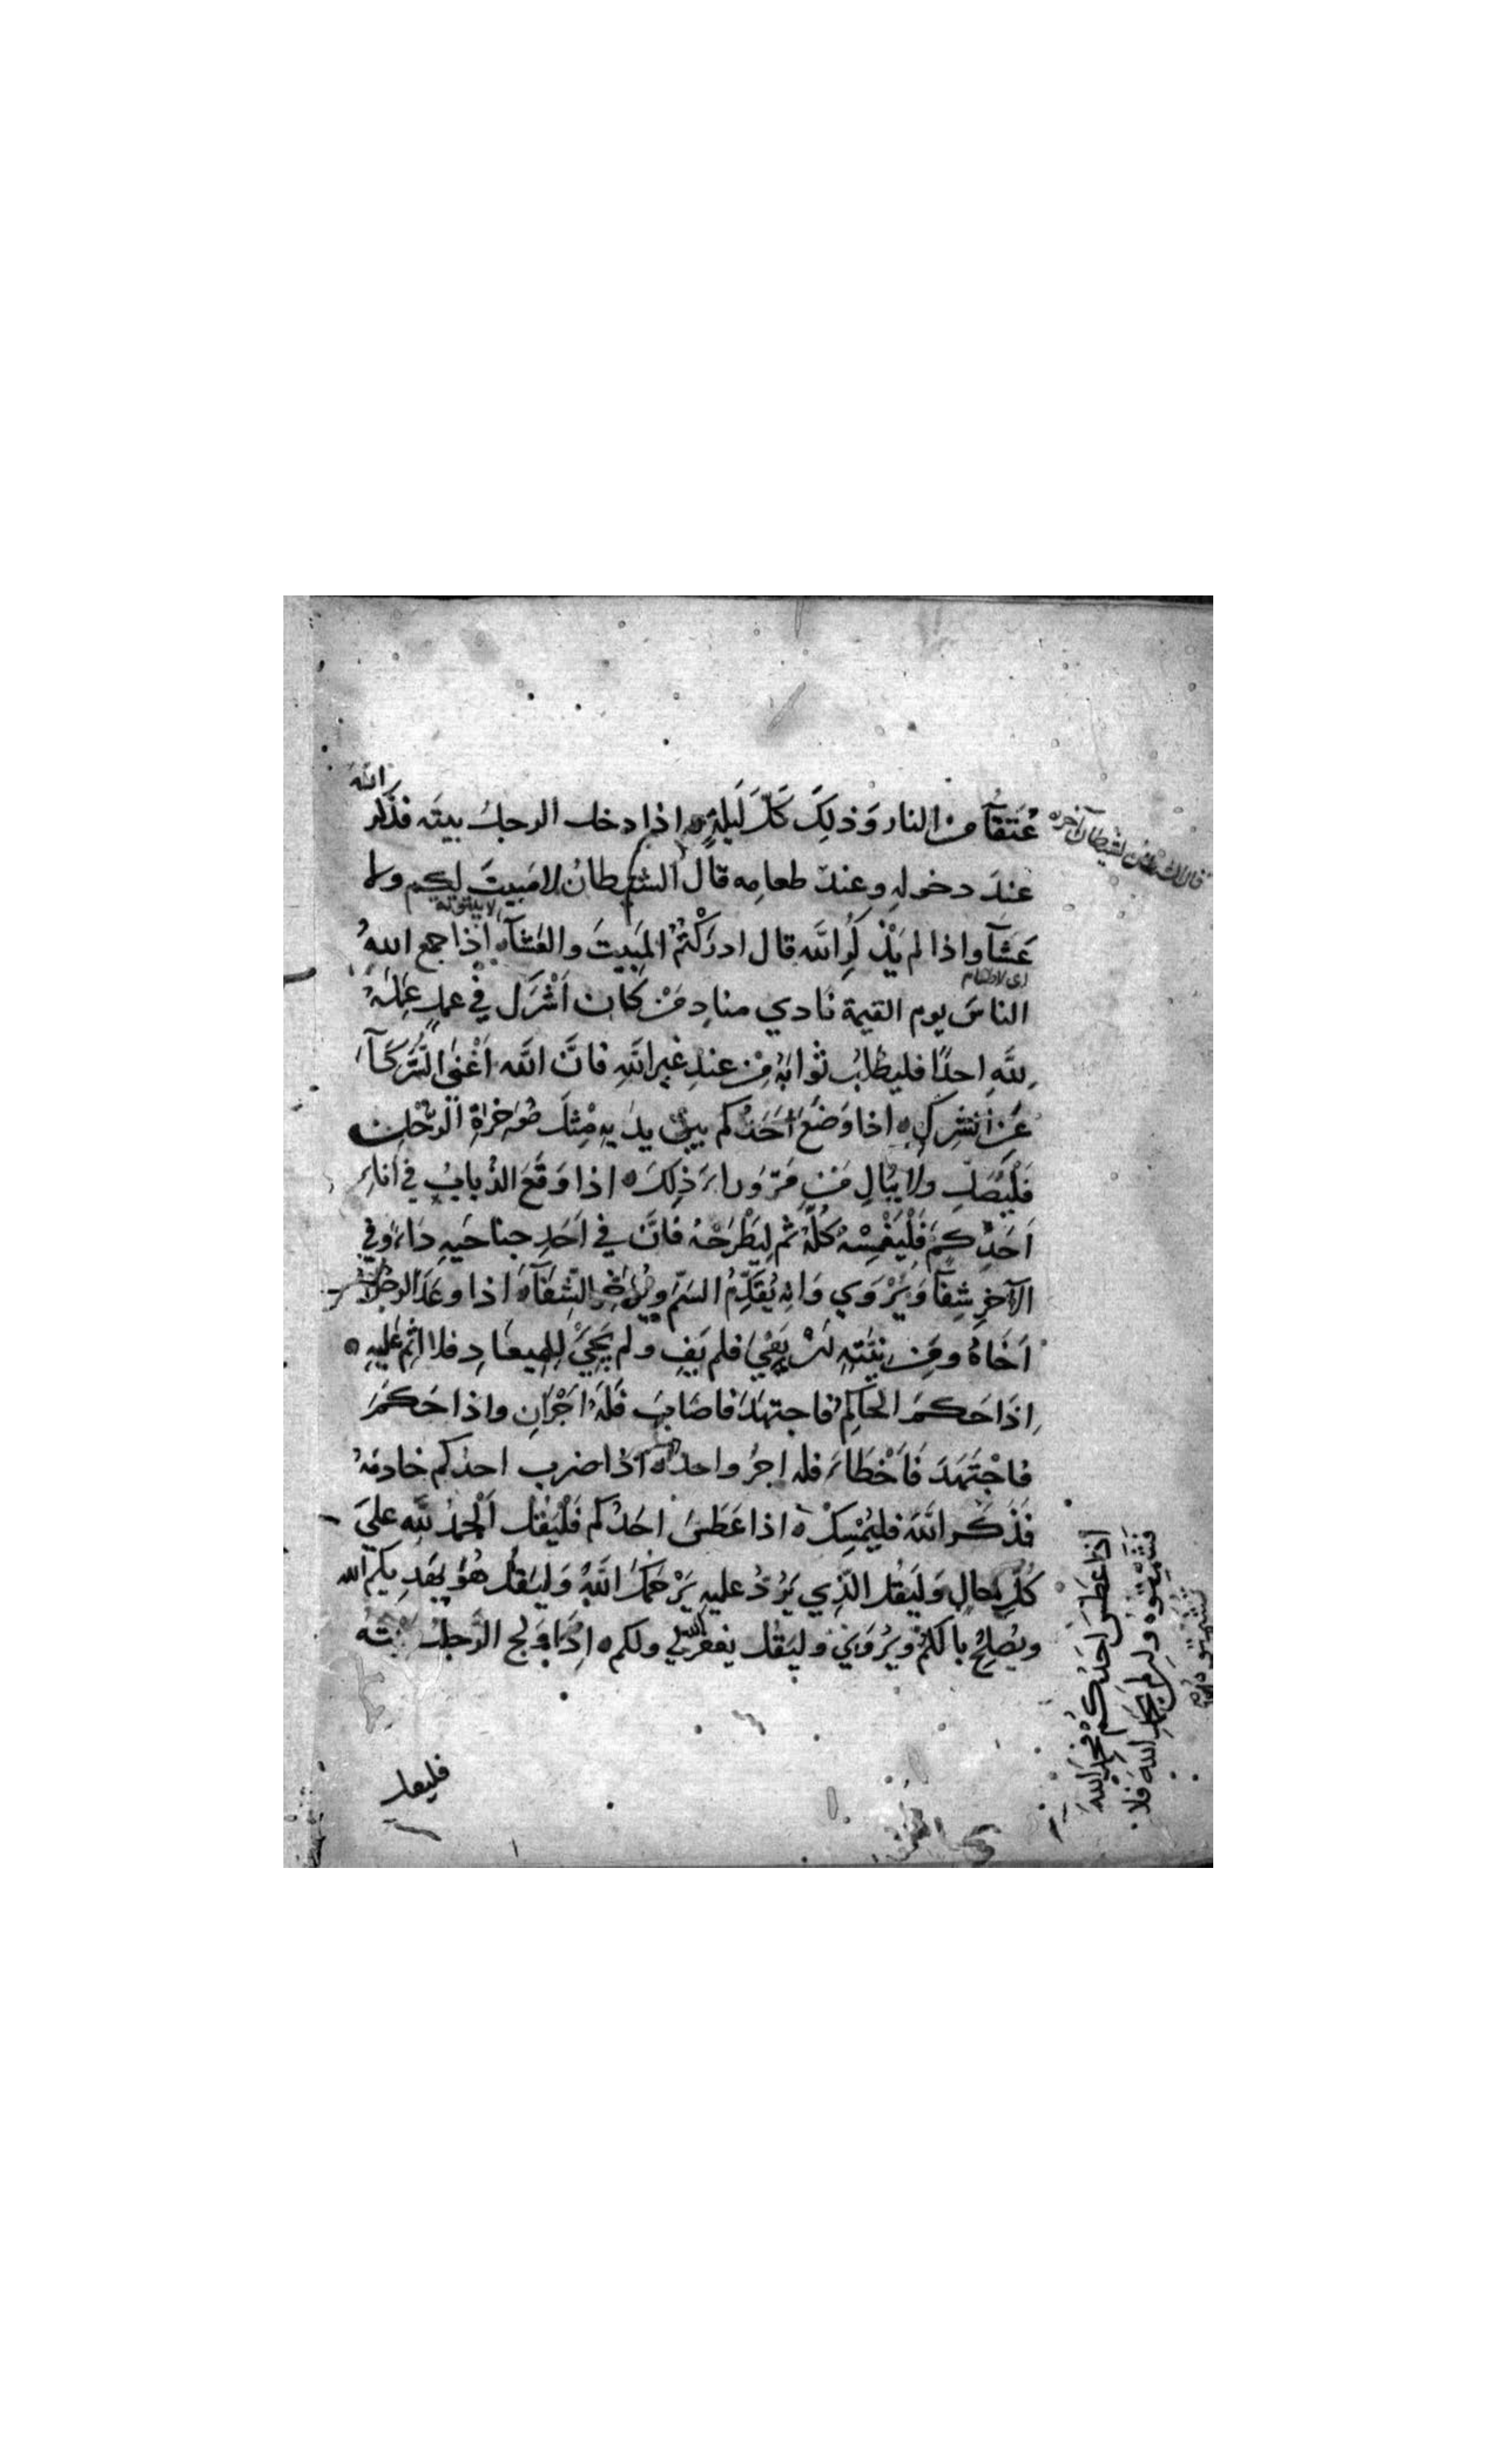 عُتَقَآءُ من النار وَذلِكَ كُلَّ لَيْلَةٍ ه اذا دخل الرجلُ بيتَه فذكر الله
عندَ دخولِه وعندَ طعامِه قال الشيطانُ لا مَبِيتَ لكم ولا
لا بيتوتة
عَشَآءَ واذا لم يَذْكُرِ اللهَ قال ادرَكْتُمُ المَبِيتَ والعَشَآءَ ه اذا جمع اللهُ
اى لا طعام
الناسَ يوم القيمة نادي منادٍ مَنْ كان اَشْرَكَ في عملٍ عمِلَهُ
لِلّهِ احدًا فليطلُبْ ثوابَهُ مِنْ عندِ غيرِ اللهِ فانَّ الله اَغْنَى الشُّرَكَآءِ
عَنِ الشِّركِ ه اذا وَضَعَ اَحَدُكم بينَ يديه مِثْلَ مُؤخِرَةِ الرَّحْلِ
فَلْيُصَلِّ ولا يُبالِ مَنْ مَرَّ وراءَ ذلِكَ ه اذا وَقَعَ الذُّبابُ في اناءِ
اَحَدِكم فَلْيَغْمِسْهُ كُلَّهُ ثم لِيَطْرَحْهُ فانَّ في اَحَدِ جناحَيهِ داءً وفي
الآخَرِ شِفَآءً ويُرْوَي وَانه يُقَدِّمُ السَمَّ ويُؤَخِّرُ الشِّفَآءَ ه اذا وعَدَ الرجلُ
اَخَاهُ ومِن نيَّتِهِ اَنْ يَفِيَ فلم يَفِ ولم يَجِئْ لِلميعادِ فلا اِثْمَ عَلَيهِ ه
اِذَا حَكَمَ الحاكِمُ فاجتهَدَ فاصَابَ فَلَهُ اَجْرَانِ واذا حَكَمَ
فاجْتَهَدَ فَاَخْطَاءَ فله اجرٌ واحدٌ ه اذا ضرب احدُكم خادمَهُ
فَذَكَرَ اللهَ فليُمْسِكْ ه اذا عَطَسَ احَدُكم فَلْيَقُلْ اَلْحمدُ لِلّهِ عليَ
كُلِّ حالٍ وَلْيَقُلِ الَّذِي يَرُدُّ عليهِ يَرْحَمُكَ اللهُ وَلْيَقُلْ هُوَ يَهْدِيكم الله
ويُصْلِحُ بالَكُمْ ويُرْوَي وليَقُلْ يغفر الله لي ولكم ه اِذَا وَلَجَ الرَّجلُ بيتَه
اذا عَطَسَ احَدُكُمْ فحَمِدَ اللهَ
فَشَمِّتُوهُ وان لم يَحْمَدِ اللهَ فَلا
تُشَمِّتُوهُ
فليقل